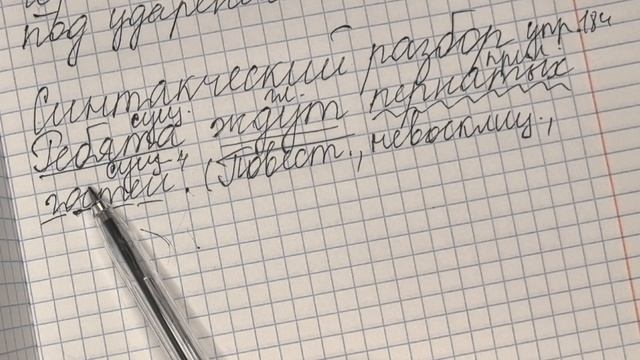 под ударе
Синтакческий разбор упр. 184
сущ. прил.
Ребята ждут пернатых
сущ.
гостей. (Повест., невосклиц.,